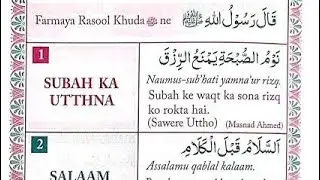 Farmaya Rasool Khuda ﷺ ne
قَالَ رَسُوْلُ اللهِ ﷺ
1
SUBAH KA
UTTHNA
نَوْمُ الصُّبْحَةِ يَمْنَعُ الرِّزْقَ
Naumus-sub'hati yamna'ur rizq.
Subah ke waqt ka sona rizq
ko rokta hai.
(Sawere Uttho) (Masnad Ahmed)
2
SALAAM
اَلسَّلَامُ قَبْلَ الْكَلَامِ
Assalamu qablal kalaam.